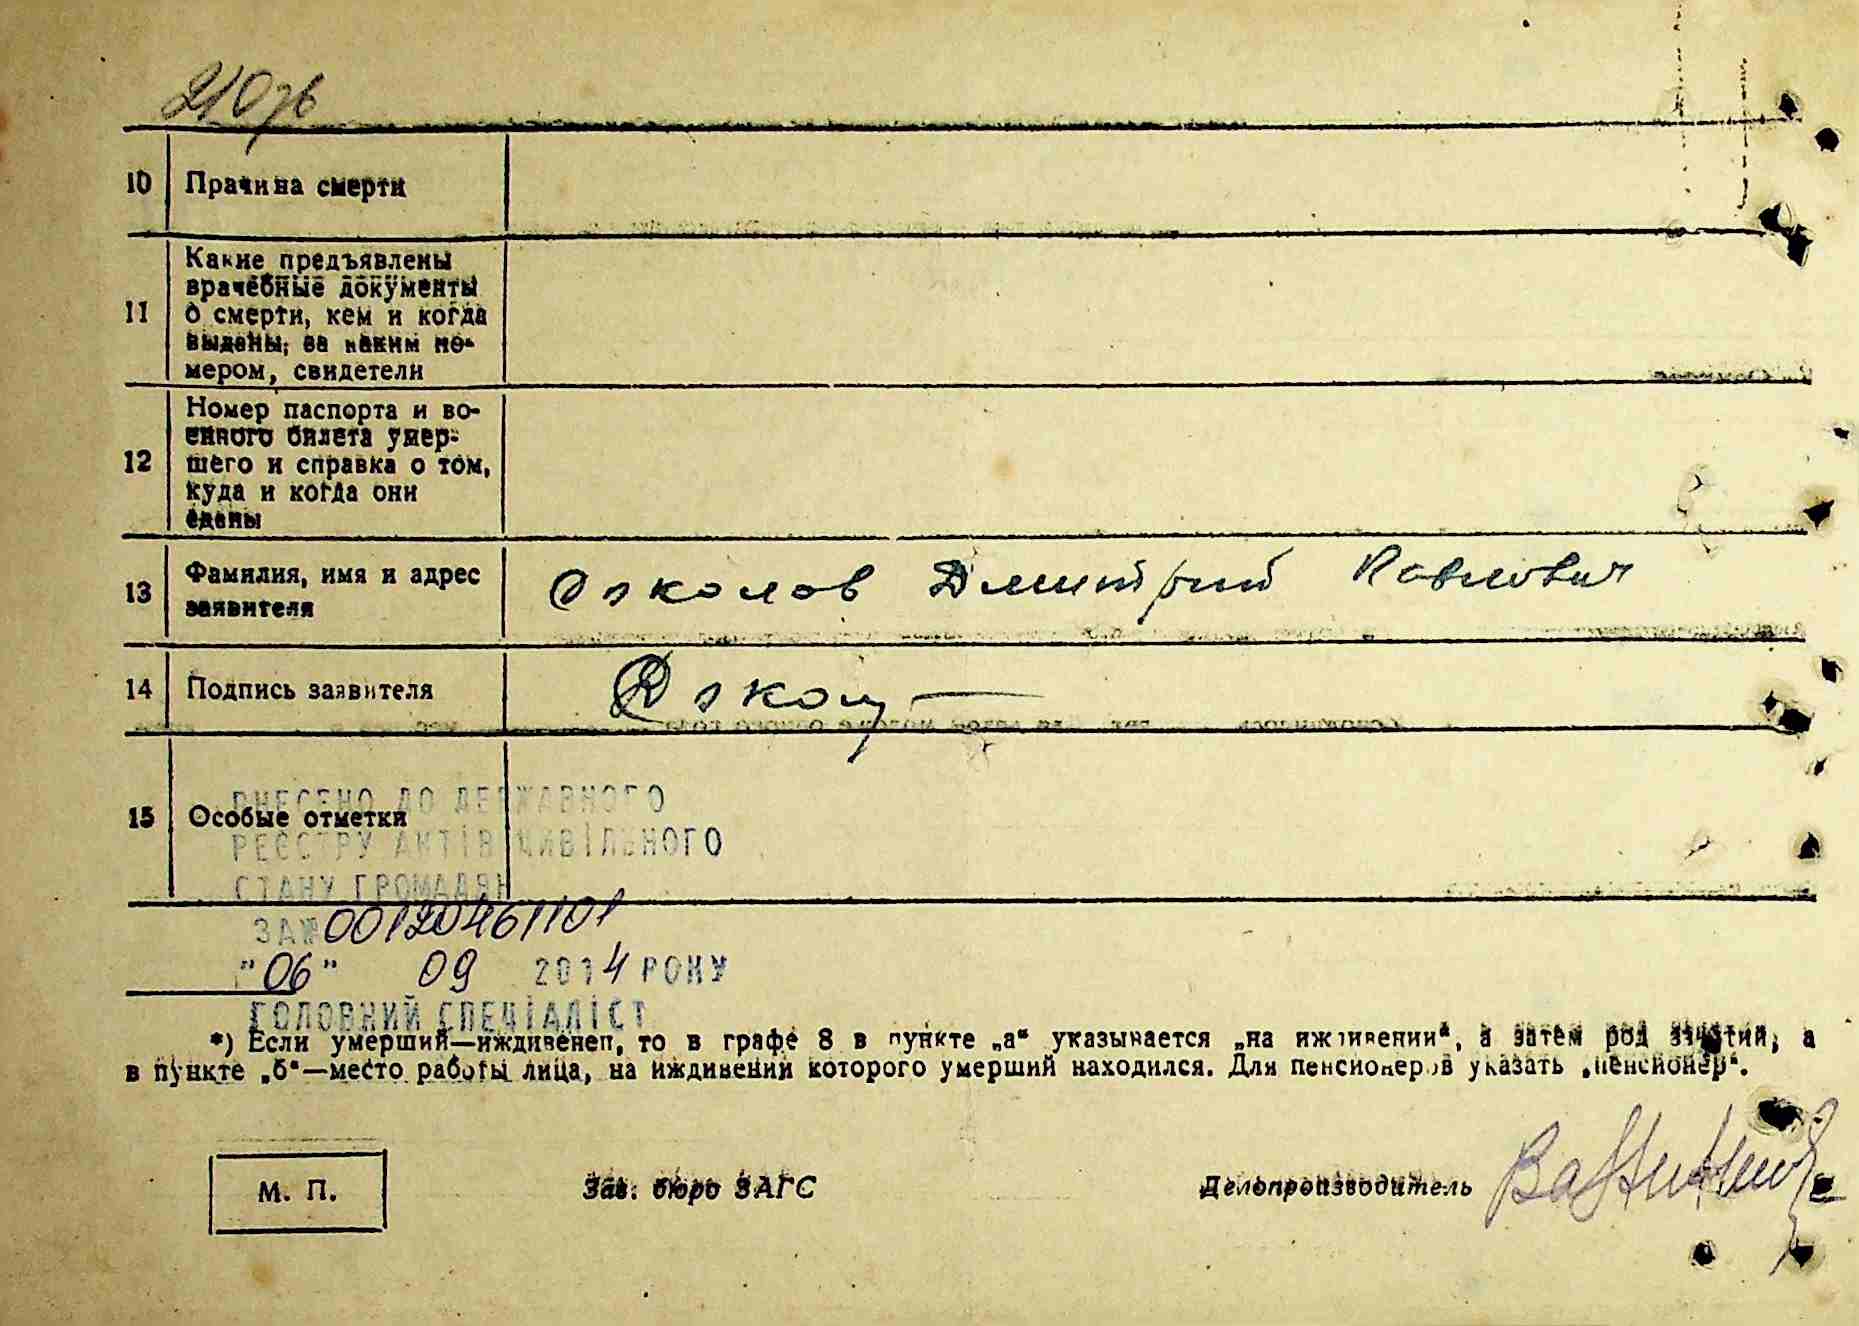 10 Причина смерти
11 Какие предъявлены
врачебные документы
о смерти, кем и когда
выданы, за каким но-
мером, свидетели
12 Номер паспорта и во-
енного билета умер-
шего и справка о том,
куда и когда они
сданы
13 Фамилия, имя и адрес
заявителя
Дмитрий Павлович
14 Подпись заявителя
15 Особые отметки
ВНЕСЕНО ДО ДЕРЖАВНОГО
РЕЄСТРУ АКТІВ ЦИВІЛЬНОГО
СТАНУ ГРОМАДЯН
ЗА № 00120461101
"06" 09 2014 РОКУ
ГОЛОВНИЙ СПЕЦІАЛІСТ
*) Если умерший—иждивенец, то в графе 8 в пункте „а“ указывается „на иждивении“, а затем род занятий, а
в пункте „б“—место работы лица, на иждивении которого умерший находился. Для пенсионеров указать „пенсионер“.
М. П.
Зав. бюро ЗАГС
Делопроизводитель